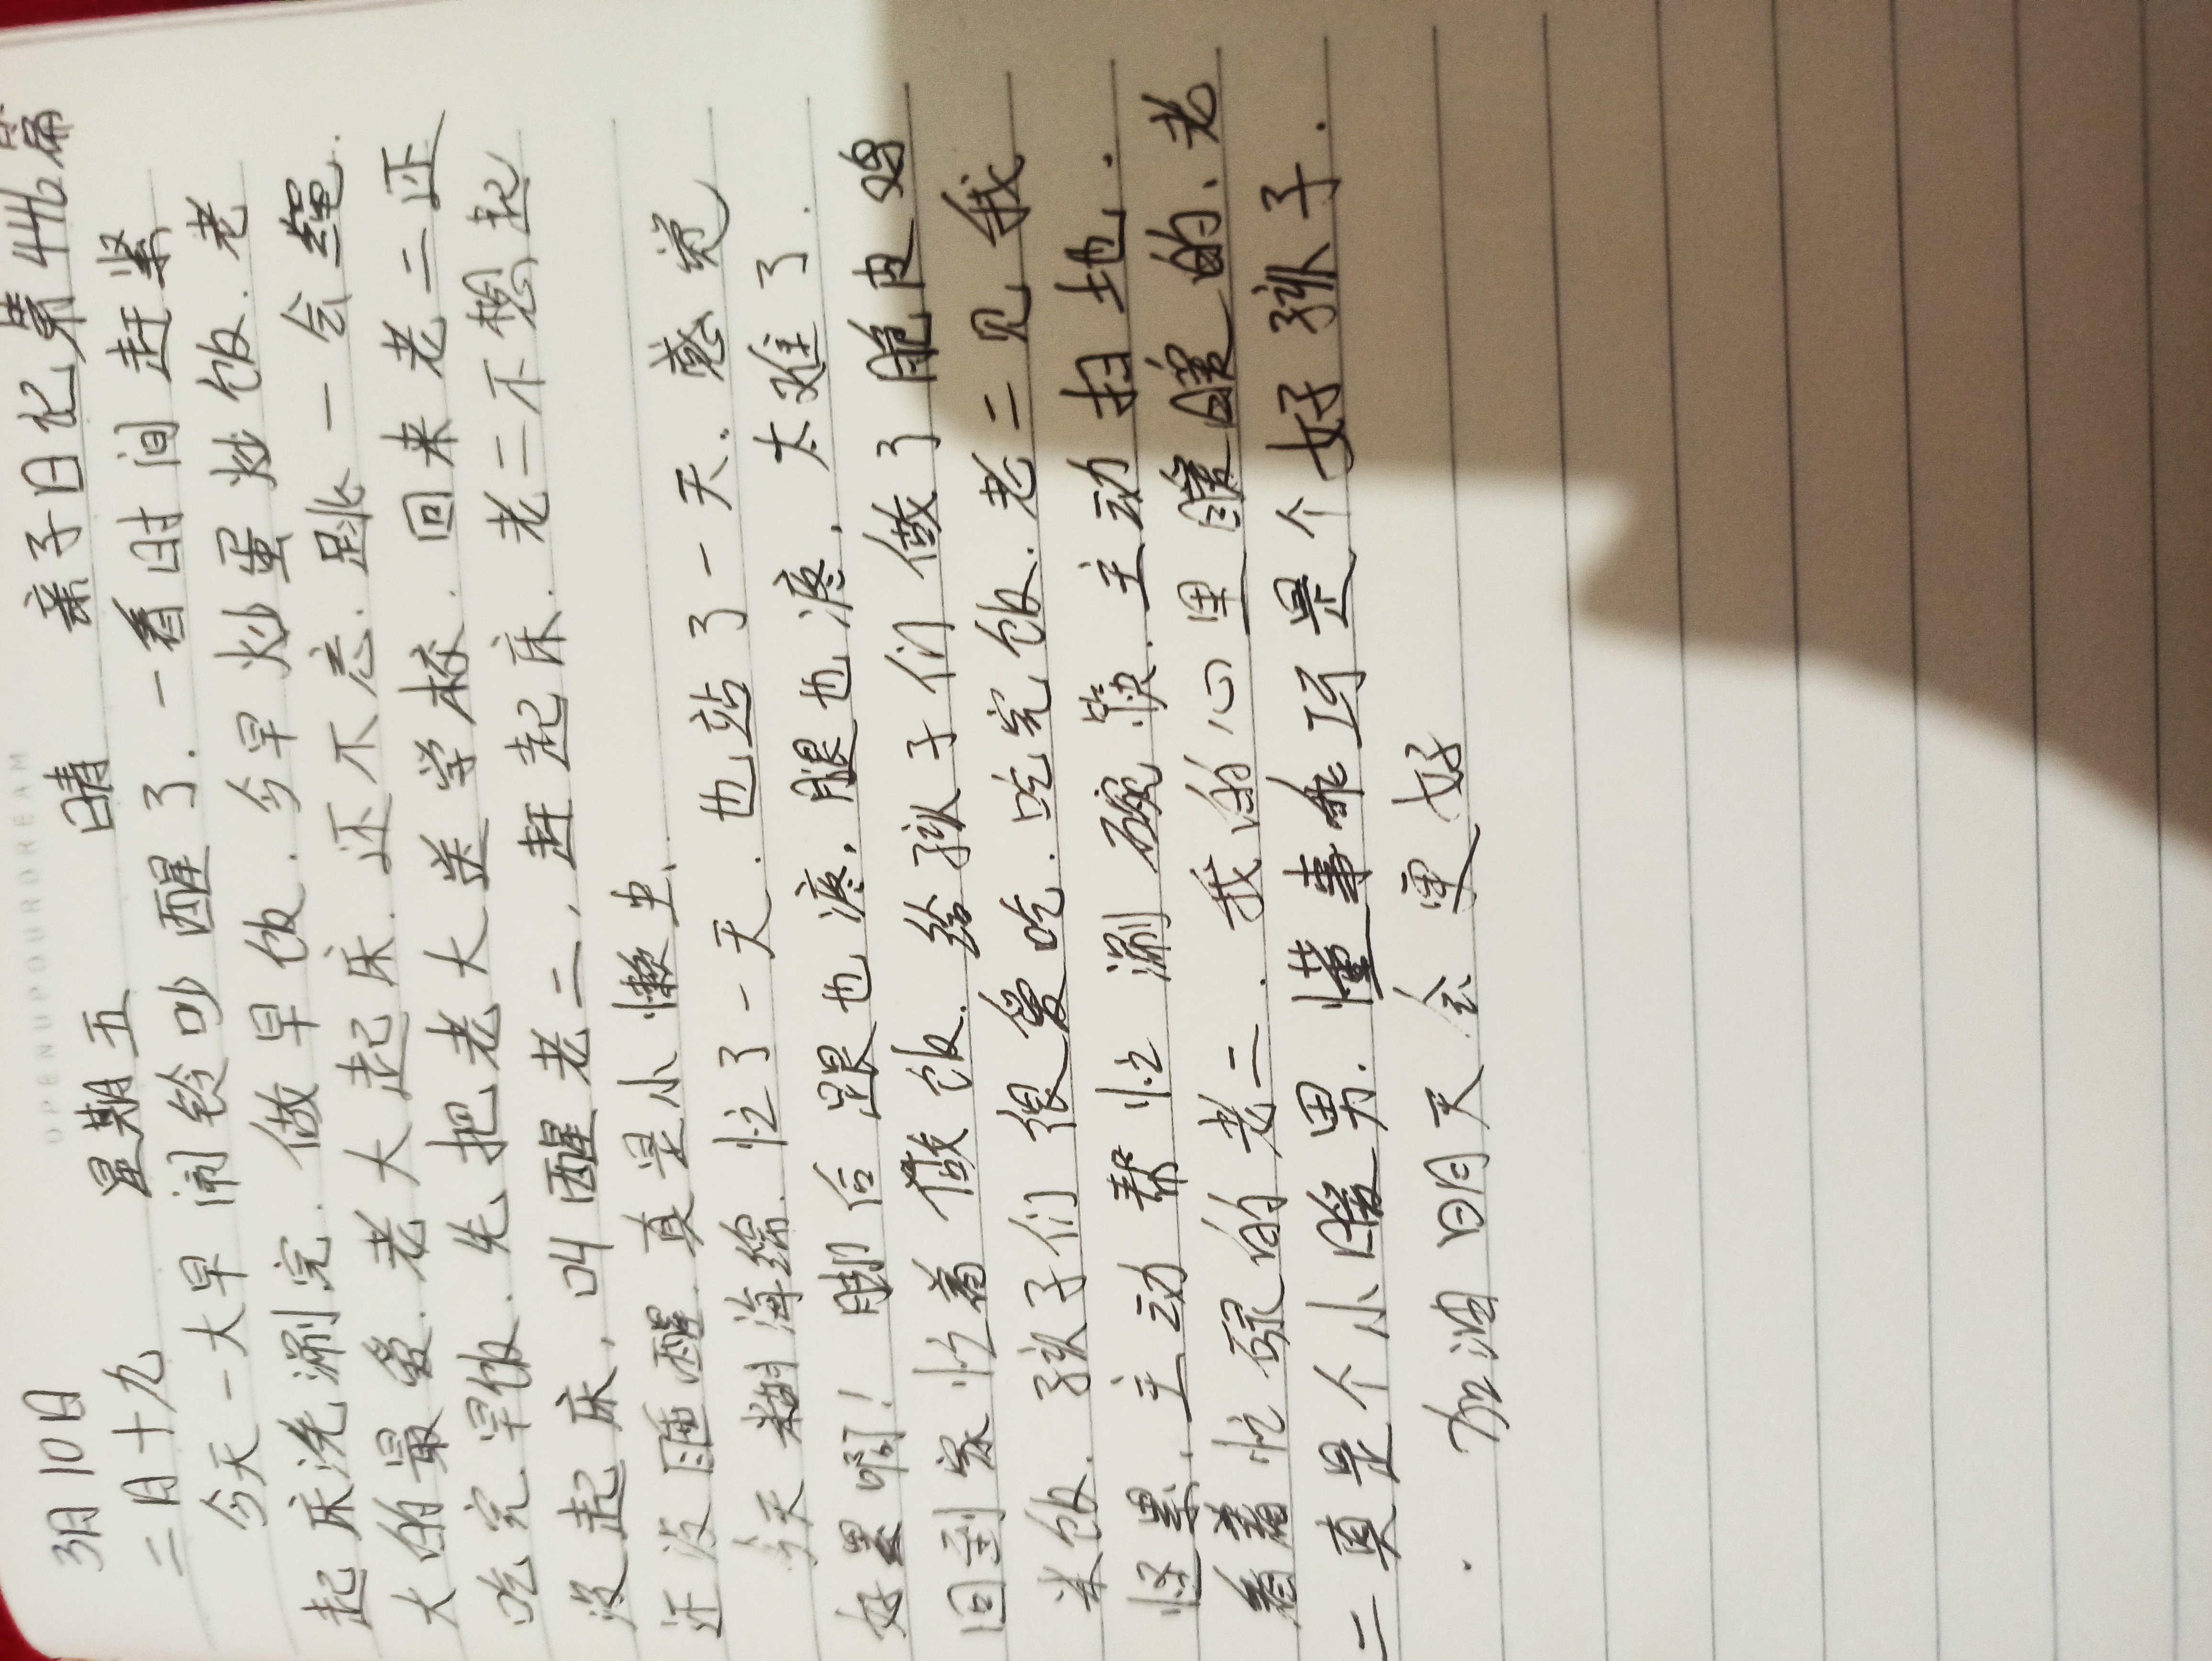 OPENUPOURDREAM
3月10日 星期五 晴 亲子日记第44篇
二月十九
今天一大早闹铃吵醒了.一看时间赶紧
起床洗涮完.做早饭.今早炒蛋炒饭.老
大的最爱.老大起床.还不忘.跳一会绳.
吃完早饭.先把老大送学校.回来老二还
没起床,叫醒老二,赶起床.老二不想起
还没睡醒.真是小懒虫.
今天糊海绵.忙了一天.也站了一天.感觉
好累啊!脚后跟也疼,腿也疼,太难了.
回到家忙着做饭.给孩子们做了脆皮鸡
米饭.孩子们很爱吃.吃完饭.老二见我
怪累,主动帮忙涮碗筷.主动扫地.
看着忙碌的老二.我的心里暖暖的、老
二真是个小暖男.懂事乖巧是个好孩子.
加油明天会更好